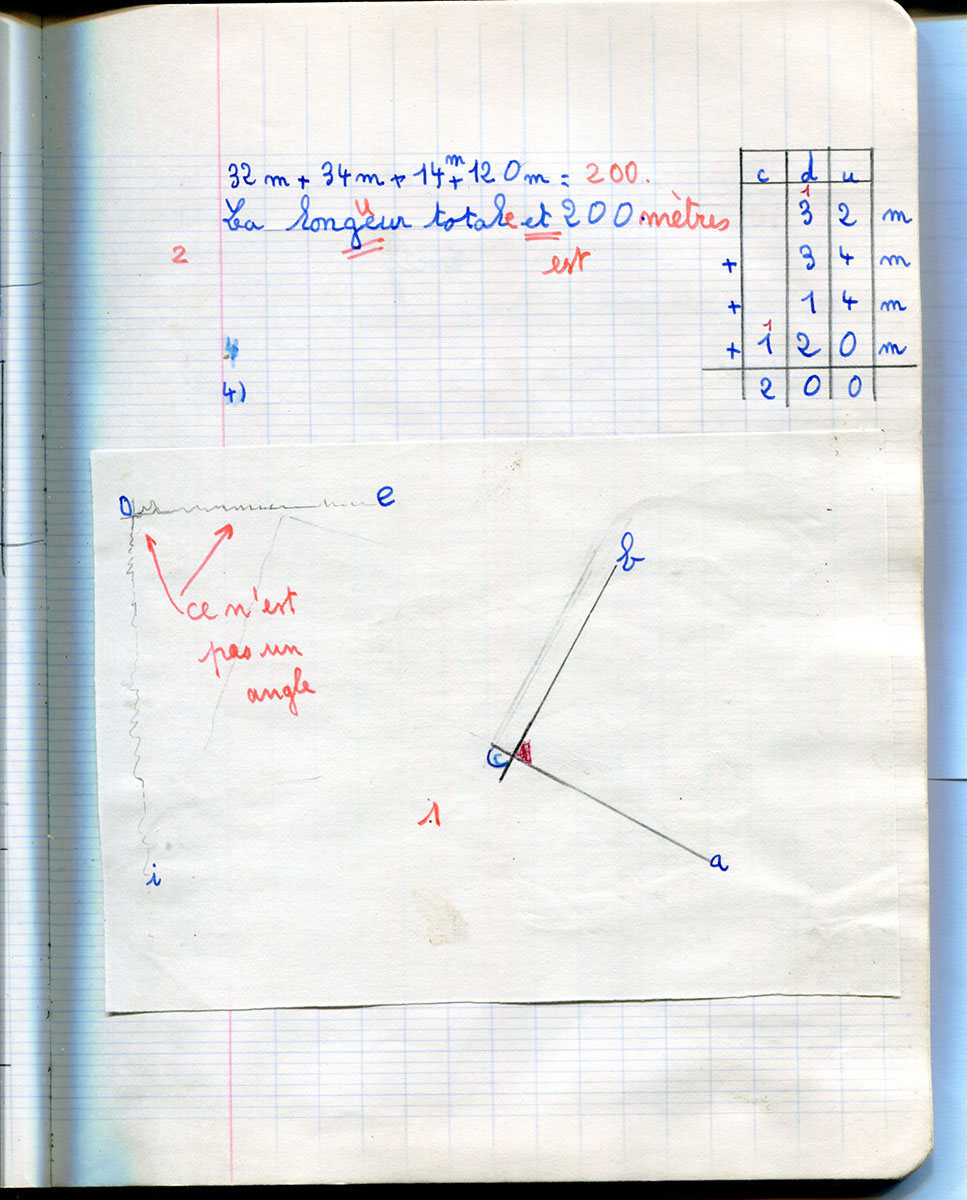 32 m + 34 m + 14 m + 120 m = 200.
La longeur totale et 200 mètres
u
2
est
4)
c d u
1
3 2 m
+ 3 4 m
+ 1 4 m
1
+ 1 2 0 m
2 0 0
o e
b
ce n'est
pas un
angle
c
1
a
i